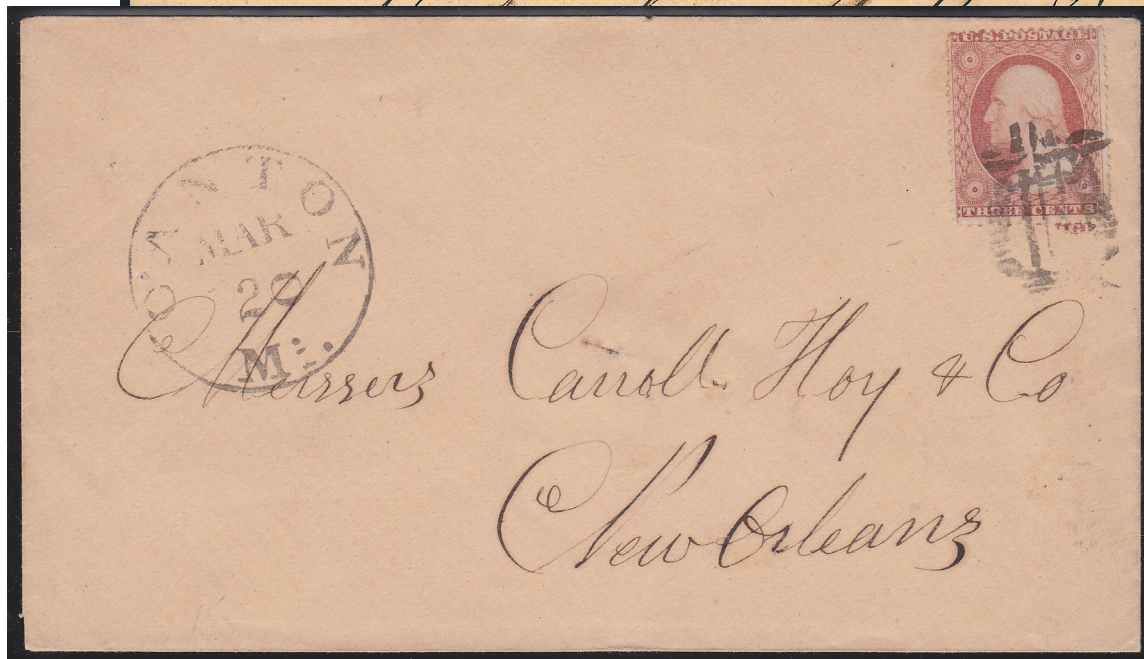 U.S. POSTAGE
THREE CENTS
CANTON
MAR
20
Mi.
Messers Carroll Hoy & Co
New Orleans